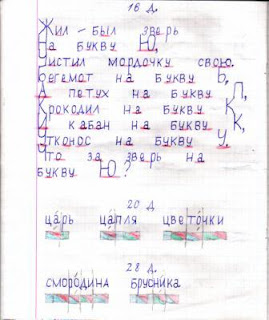 16 д.
Жил - был зверь
На букву Ю,
Чистил мордочку свою.
Бегемот на букву Б,
А петух на букву П,
Крокодил на букву К,
И кабан на букву К,
Утконос на букву У.
Что за зверь на
букву Ю?
20 д.
царь цапля цветочки
28 д.
смородина брусника